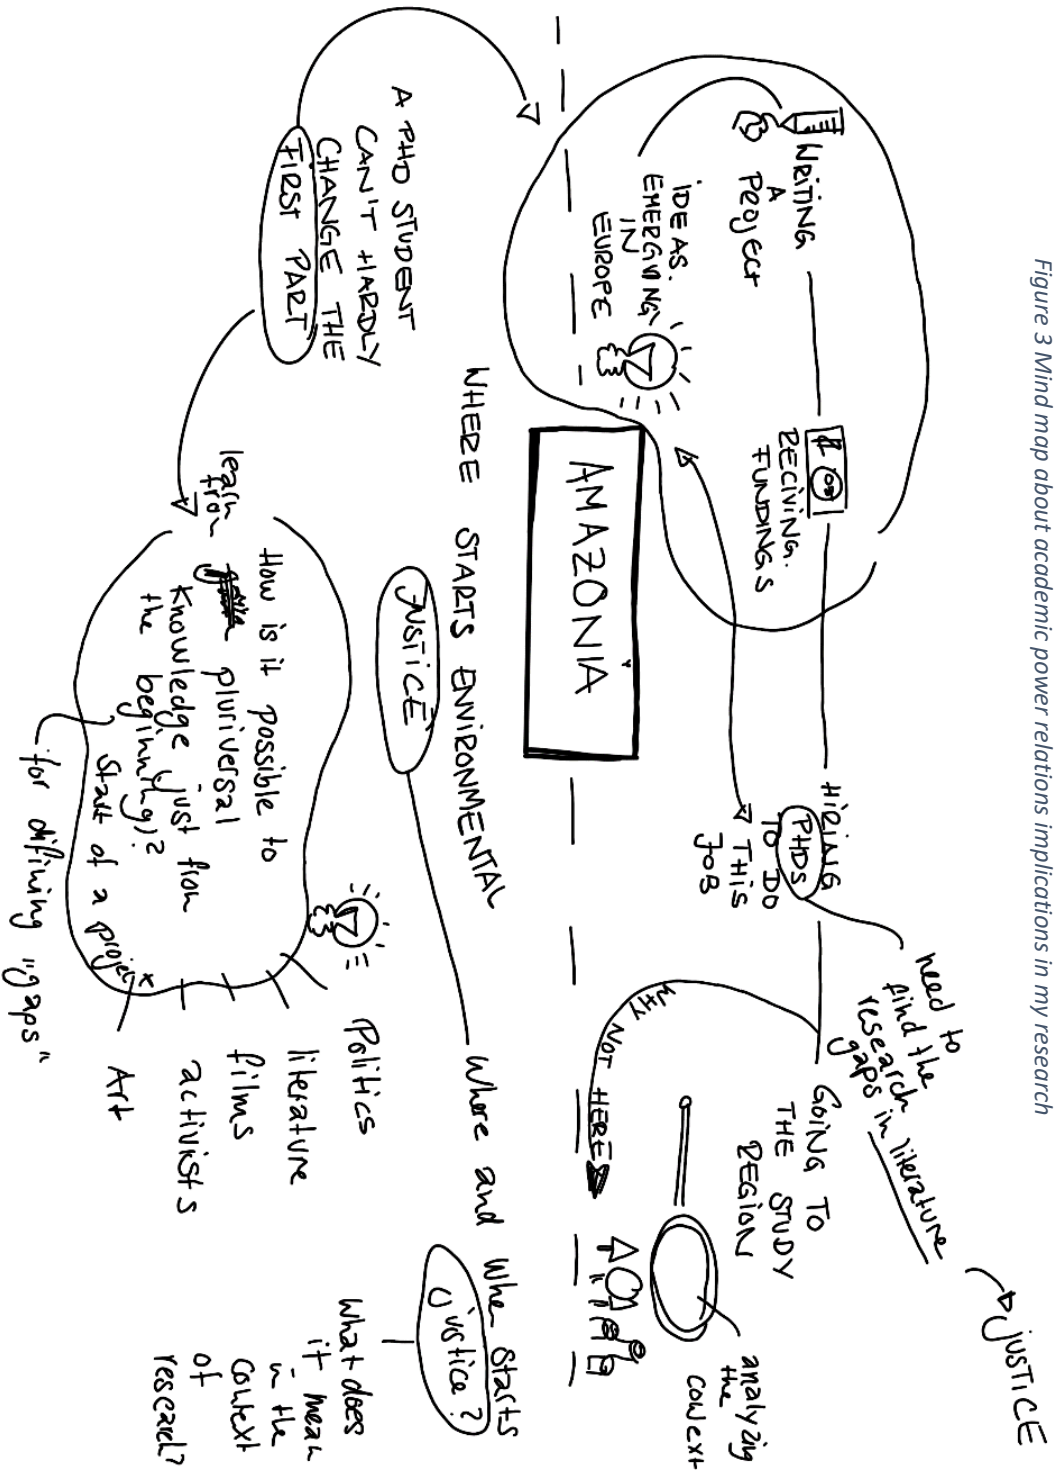 Figure 3 Mind map about academic power relations implications in my research
WRITING
A
PROJECT
IDEAS.
EMERGING
IN
EUROPE
RECIVING.
FUNDINGS
HIRING
PHDS
TO DO
THIS
JOB
need to
find the
research
gaps in literature
JUSTICE
GOING TO
THE STUDY
REGION
WHY NOT HERE
analyzing
the
context
AMAZONIA
WHERE STARTS ENVIRONMENTAL
JUSTICE
Where and When starts
justice?
What does
it mean
in the
context
of
research?
A PHD STUDENT
CAN'T HARDLY
CHANGE THE
FIRST PART
How is it possible to
learn from pluriversal
Knowledge just from
the beginning)?
Start of a project
for difining "gaps"
Politics
literature
films
activists
Art